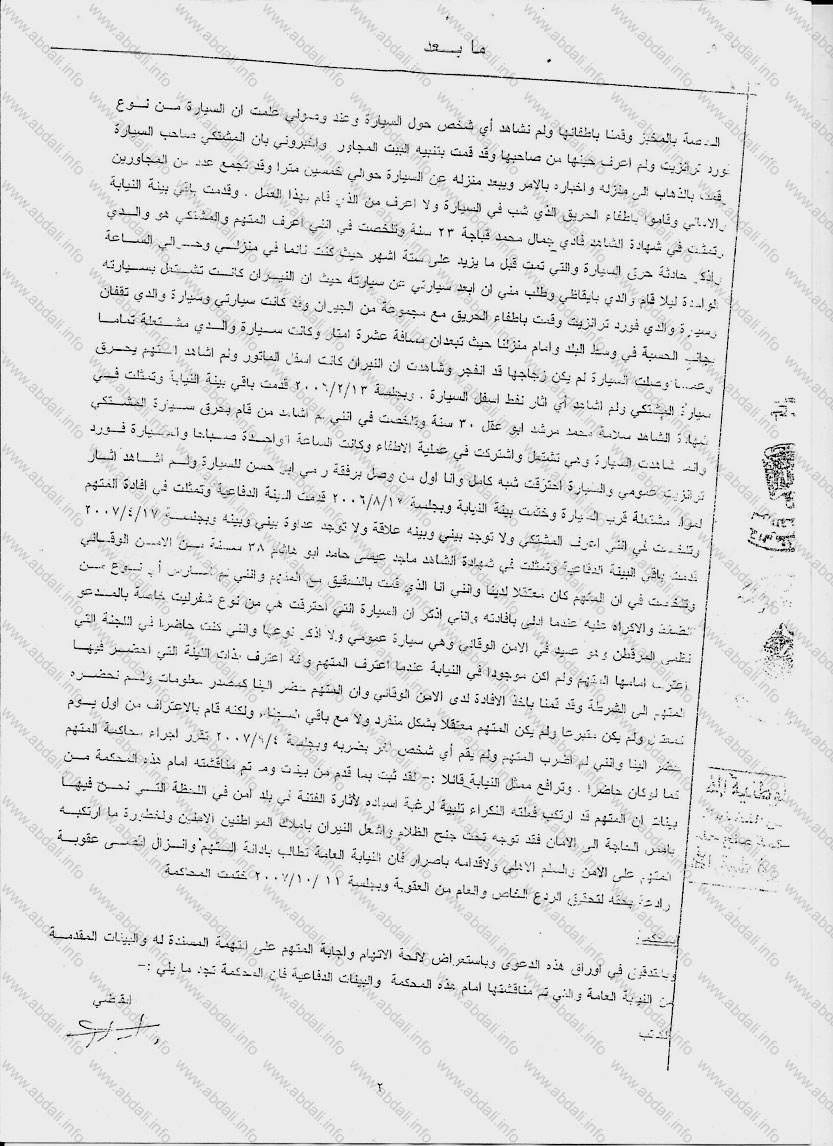 ما بعد
بالمخبز وقمنا باطفائها ولم نشاهد أي شخص حول السيارة وعند وصولي علمت ان السيارة من نوع
فورد ترانزيت ولم اعرف حينها من صاحبها وقد قمت بتنبيه البيت المجاور واخبروني بان المشتكي صاحب السيارة
فقمت بالذهاب الى منزله واخباره بالامر ويبعد منزله عن السيارة حوالي خمسين مترا وقد تجمع عدد من المجاورين
والاهالي وقاموا باطفاء الحريق الذي شب في السيارة ولا اعرف من الذي قام بهذا العمل . وقدمت باقي بينة النيابة
وتمثلت في شهادة الشاهد فادي جمال محمد قباجة ٢٣ سنة وتلخصت في انني اعرف المتهم والمشتكي هو والدي
واذكر حادثة حرق السيارة والتي تمت قبل ما يزيد على ستة اشهر حيث كنت نائما في منزلي وحوالي الساعة
الواحدة ليلا قام والدي بايقاظي وطلب مني ان ابعد سيارتي عن سيارته حيث ان النيران كانت تشتعل بسيارته
وسيارة والدي فورد ترانزيت وقمت باطفاء الحريق مع مجموعة من الجيران وقد كانت سيارتي وسيارة والدي تقفان
بجانب الحسبة في وسط البلد وامام منزلنا حيث تبعدان مسافة عشرة امتار وكانت سيارة والدي مشتعلة تماما
وعندما وصلت السيارة لم يكن زجاجها قد انفجر وشاهدت ان النيران كانت اسفل الماتور ولم اشاهد المتهم يحرق
سيارة المشتكي ولم اشاهد أي اثار نفط اسفل السيارة . وبجلسة ٢٠٠٦/٢/١٣ قدمت باقي بينة النيابة وتمثلت في
شهادة الشاهد سلامة محمد مرشد ابو عقل ٣٠ سنة وتلخصت في انني لم اشاهد من قام بحرق سيارة المشتكي
وانما شاهدت السيارة وهي تشتعل واشتركت في عملية الاطفاء وكانت الساعة الواحدة صباحا والسيارة فورد
ترانزيت عمومي والسيارة احترقت شبه كامل وانا اول من وصل برفقة رمي ابو حسن للسيارة ولم اشاهد اثار
لمواد مشتعلة قرب السيارة وختمت بينة النيابة وبجلسة ٢٠٠٦/٨/١٧ قدمت البينة الدفاعية وتمثلت في افادة المتهم
وتلخصت في انني اعرف المشتكي ولا توجد بيني وبينه علاقة ولا توجد عداوة بيني وبينه وبجلسة ٢٠٠٧/٤/١٧
قدمت باقي البينة الدفاعية وتمثلت في شهادة الشاهد ماجد عيسى حامد ابو هاشم ٣٨ سنة من الامن الوقائي
وتلخصت في ان المتهم كان معتقلا لدينا وانني انا الذي قمت بالتحقيق مع المتهم وانني لم امارس أي نوع من
الضغط والاكراه عليه عندما ادلى بافادته وانني اذكر ان السيارة التي احترقت هي من نوع شفرليت خاصة بالمدعو
نظمي المرقطن وهو عميد في الامن الوقائي وهي سيارة عمومي ولا اذكر نوعها وانني كنت حاضرا في اللجنة التي
اعترف امامها المتهم ولم اكن موجودا في النيابة عندما اعترف المتهم وانه اعترف بذات الليلة التي احضر فيها
المتهم الى الشرطة وقد قمنا باخذ الافادة لدى الامن الوقائي وان المتهم حضر الينا كمصدر معلومات ولم نحضره
كمعتقل ولم يكن متبرعا ولم يكن المتهم معتقلا بشكل منفرد ولا مع باقي السجناء ولكنه قام بالاعتراف من اول يوم
حضر الينا وانني لم اضرب المتهم ولم يقم أي شخص اخر بضربه وبجلسة ٢٠٠٧/٩/٤ تقرر اجراء محاكمة المتهم
كما لو كان حاضرا . وترافع ممثل النيابة قائلا :- لقد ثبت بما قدم من بينات وما تم مناقشته امام هذه المحكمة من
بينات ان المتهم قد ارتكب فعلته النكراء تلبية لرغبة اسياده لاثارة الفتنة في بلد امن في اللحظة التي نحن فيها
بامس الحاجة الى الامان فقد توجه تحت جنح الظلام واشعل النيران باملاك المواطنين الامنين ولخطورة ما ارتكبه
المتهم على الامن والسلم الاهلي ولاقدامه باصرار فان النيابة العامة تطالب بادانة المتهم وانزال اقصى عقوبة
رادعة بحقه لتحقيق الردع الخاص والعام من العقوبة وبجلسة ١١ /٢٠٠٧/١٠ ختمت المحاكمة
المحكمة:
وبالتدقيق في اوراق هذه الدعوى وباستعراض لائحة الاتهام واجابة المتهم على التهمة المسندة له والبينات المقدمة
من النيابة العامة والتي تم مناقشتها امام هذه المحكمة والبينات الدفاعية فان المحكمة تجد ما يلي :-
الكاتب
القاضي
٢
www.abdali.info